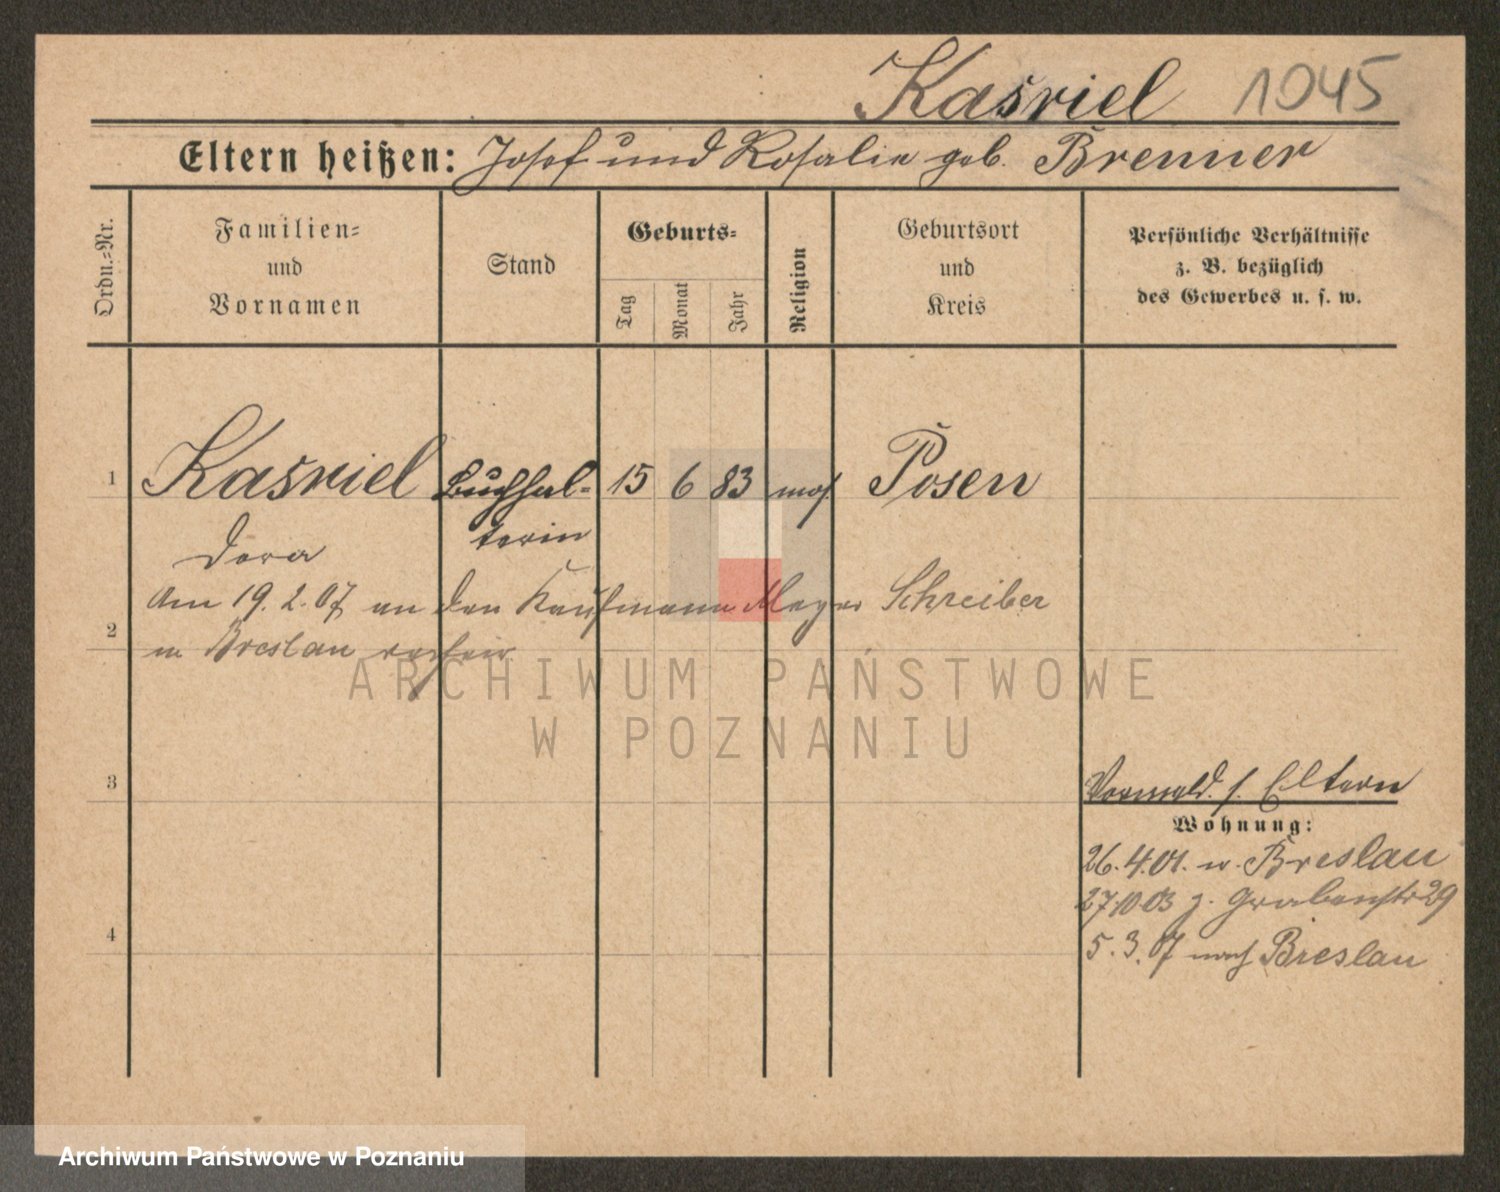 Kasriel 1045
Eltern heißen: Josef und Rosalie geb. Brenner
Ordn.-Nr.
Familien-
und
Vornamen
Stand
Geburts-
Tag
Monat
Jahr
Religion
Geburtsort
und
Kreis
Persönliche Verhältnisse
z. B. bezüglich
des Gewerbes u. s. w.
1 Kasriel Buchhal- 15 6 83 mos. Posen
terin
Dora
Am 19.2.07 an den Kaufmann Meyer Schreiber
2
in Breslau
ARCHIWUM PAŃSTWOWE
W POZNANIU
3
Vormeld. s. Eltern
Wohnung:
26.4.01. n. Breslau
27.10.03 z. Grabenstr 29
4
5.3.07 nach Breslau
Archiwum Państwowe w Poznaniu